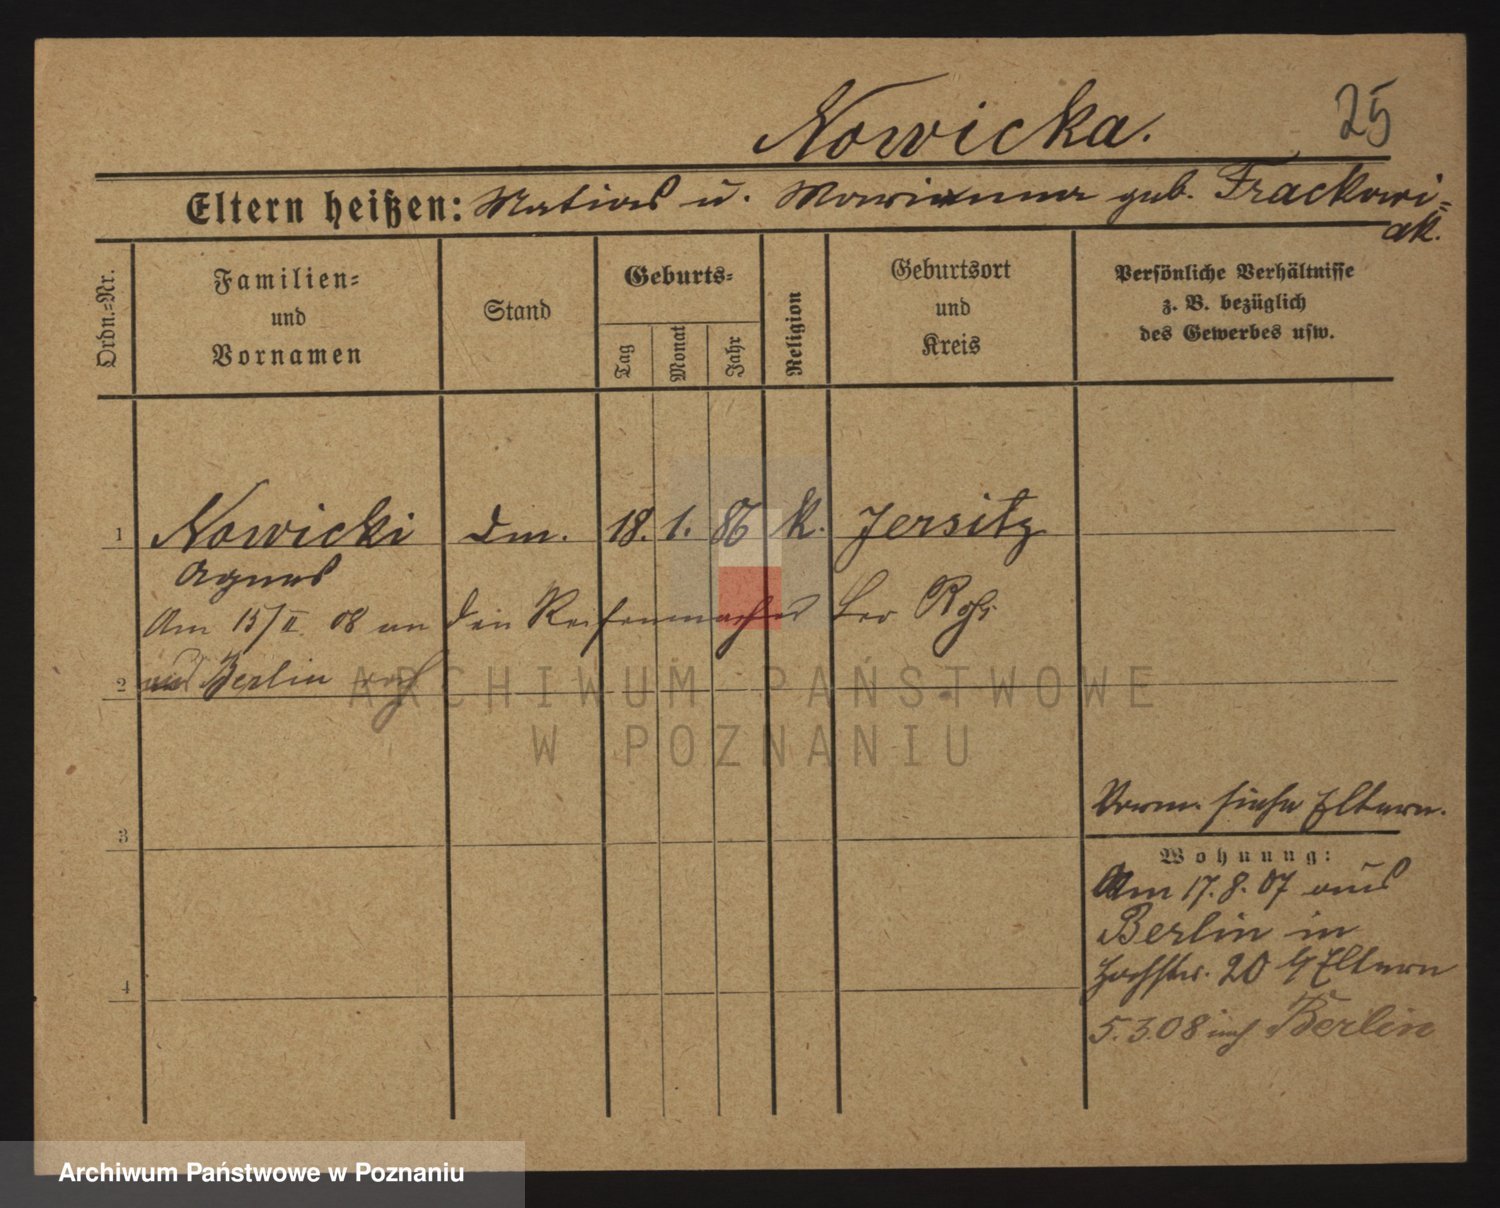 Nowicka.
25
Eltern heißen: Matias u. Marianna geb. Frackowi=
ak.
Ordn.=Nr.
Familien=
und
Vornamen
Stand
Geburts=
Tag
Monat
Jahr
Religion
Geburtsort
und
Kreis
Persönliche Verhältnisse
z. B. bezüglich
des Gewerbes usw.
1 Nowicki dm. 18. 1. 86 K. Jersitz
Agnes
Am 15/II. 08 an den Reifenmacher Leo
2 aus Berlin
3
4
Verm. siehe Eltern.
Wohnung:
Am 17.8.07 aus
Berlin in
20 b/Eltern
5.3.08 Berlin
ARCHIWUM PAŃSTWOWE
W POZNANIU
Archiwum Państwowe w Poznaniu